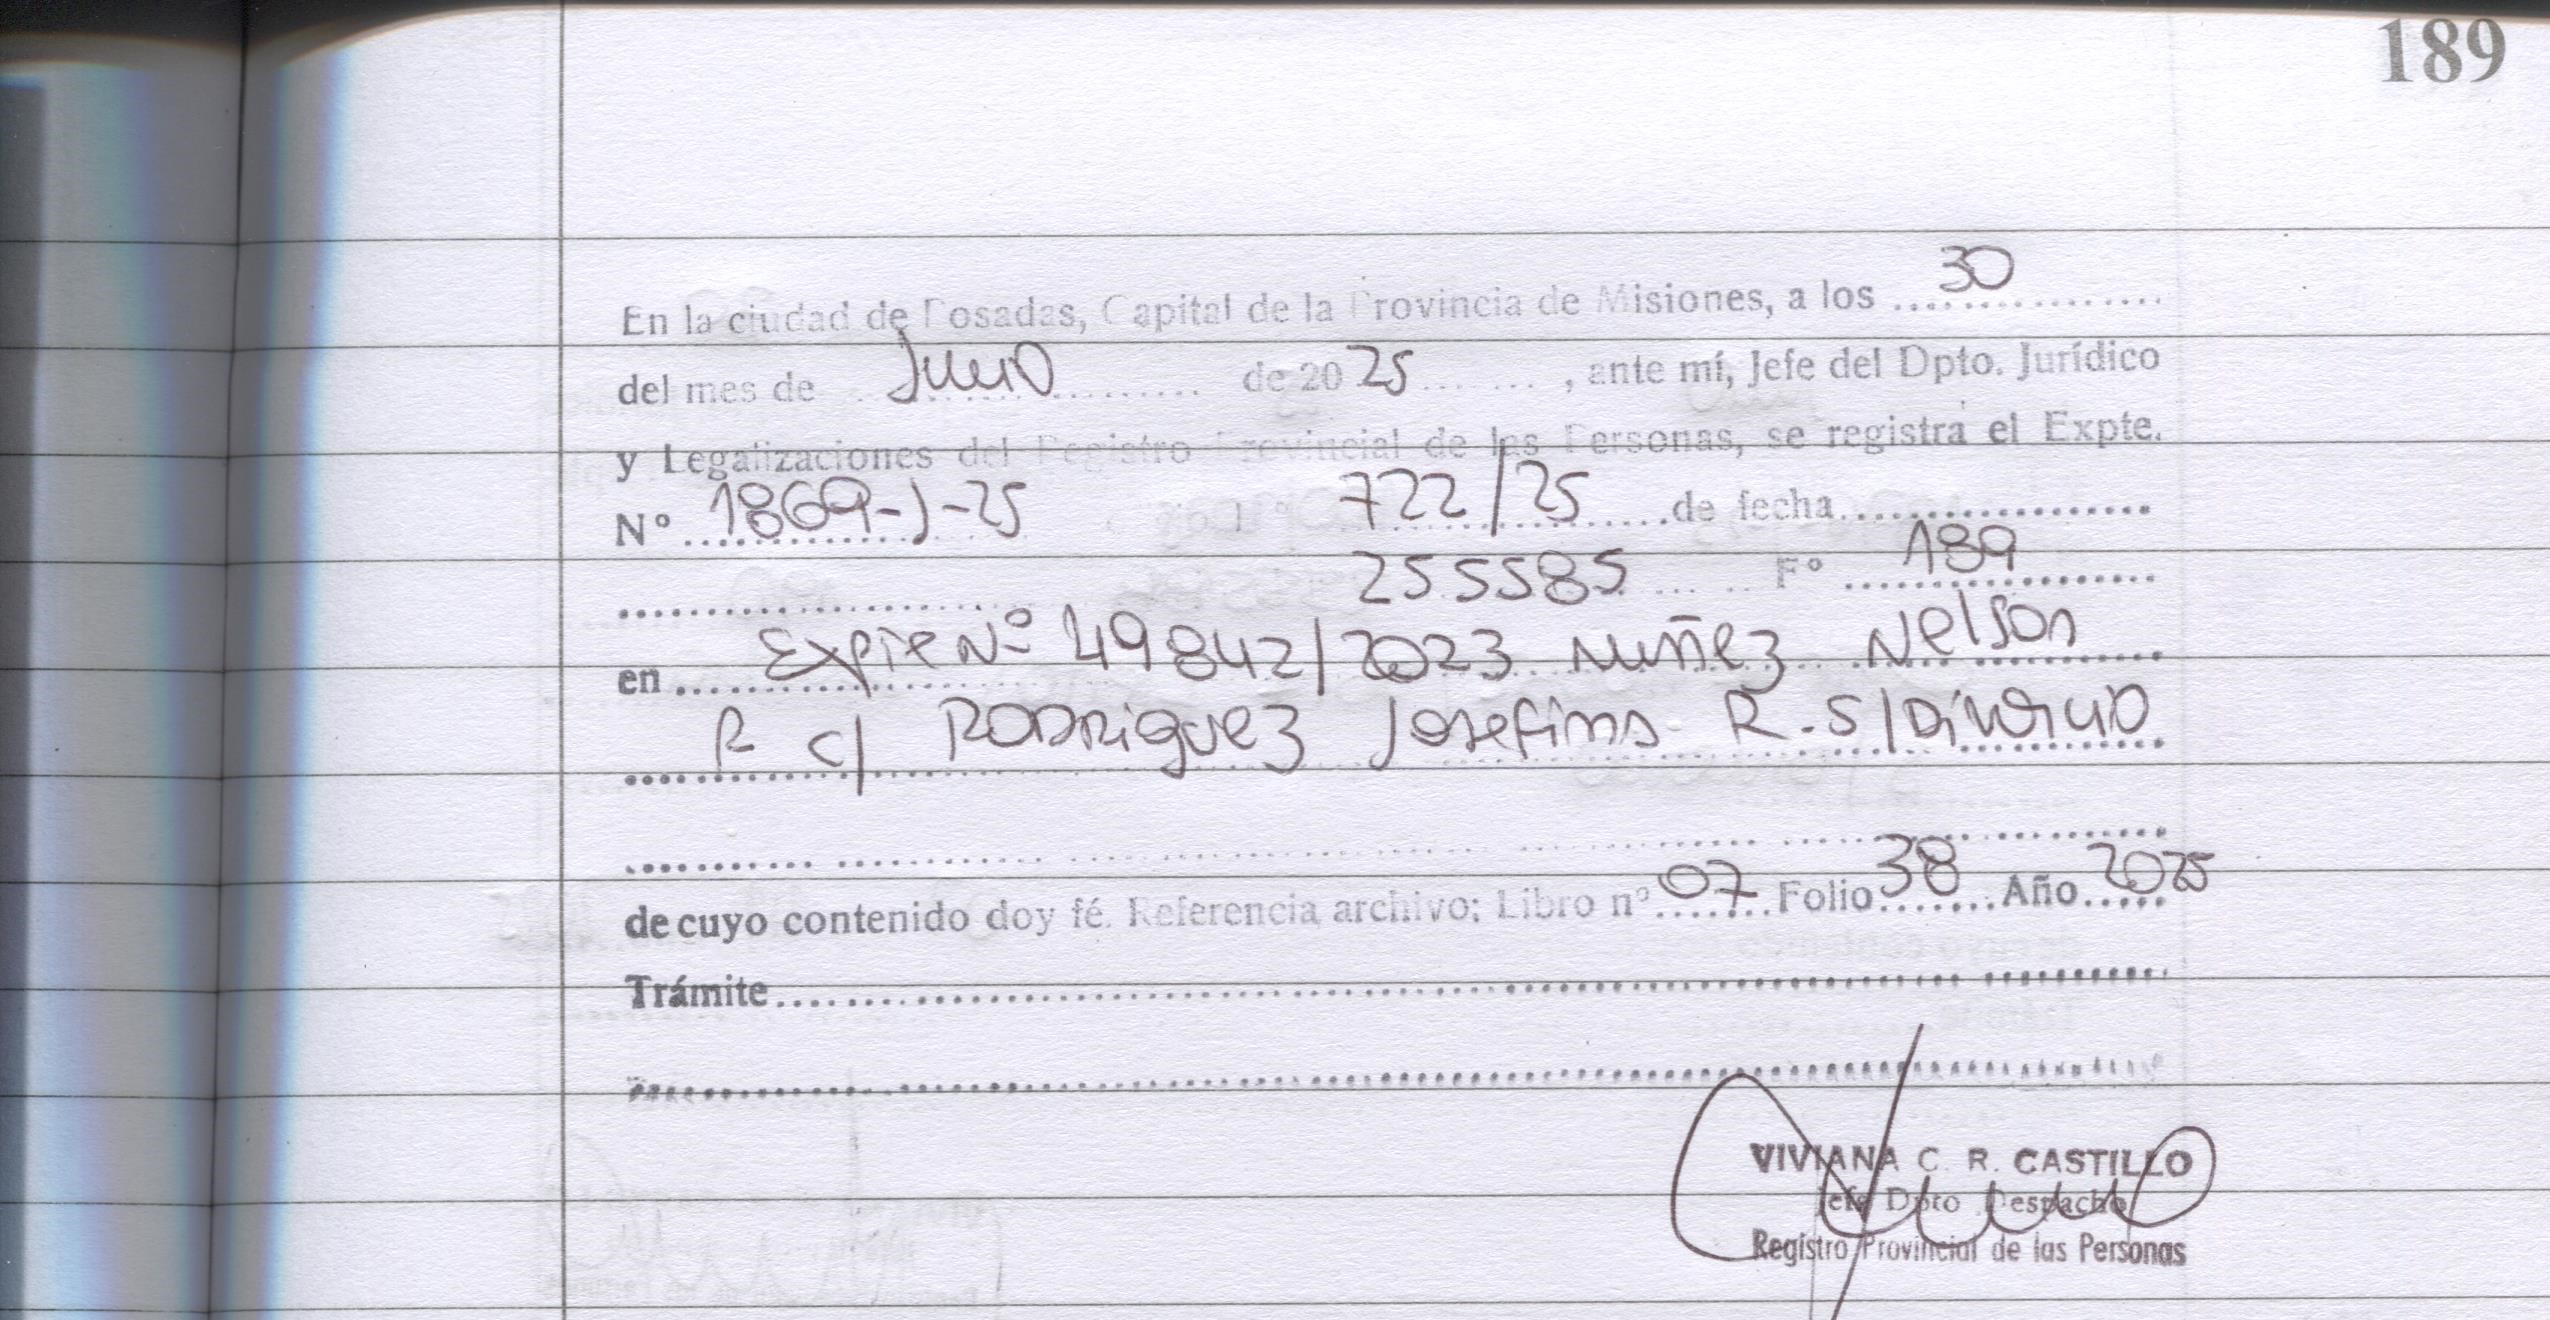 189
En la ciudad de Posadas, Capital de la Provincia de Misiones, a los 30
del mes de Junio de 2025, ante mí, Jefe del Dpto. Jurídico
y Legalizaciones del Registro Provincial de las Personas, se registra el Expte.
N° 1869-J-25 722/25 de fecha
255585 F° 189
en Expte Nº 49842/2023 Nuñez Nelson
R c/ Rodriguez Josefina R. S/Divorcio
de cuyo contenido doy fé. Referencia archivo: Libro nº 07 Folio 38 Año 2025
Trámite
VIVIANA C. R. CASTILLO
Jefe Dpto Despacho
Registro Provincial de las Personas